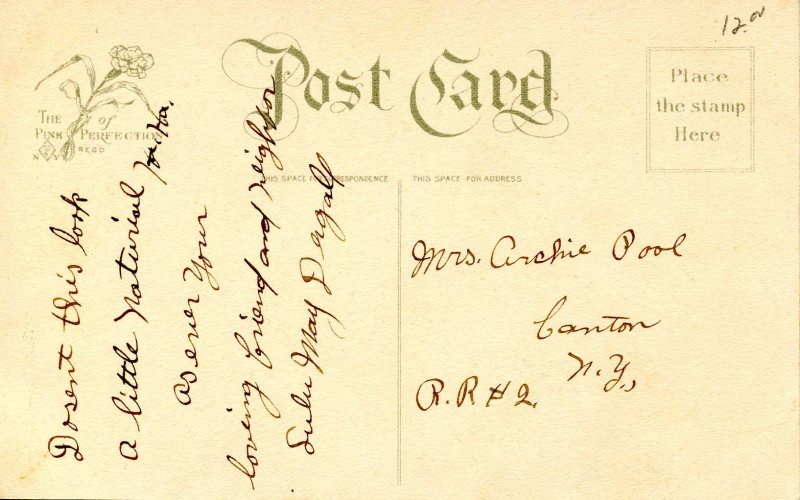 12.00
Post Card
Place
the stamp
Here
The
Pink of Perfection
REGD
N Y
THIS SPACE FOR CORRESPONDENCE
THIS SPACE FOR ADDRESS
Dosent this look
a little natural
as ever your
loving friend and neighbor
May
Mrs. Archie Pool
Canton
N.Y.,
R.R #2.